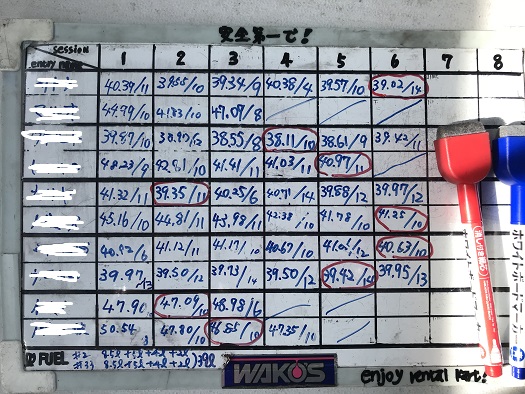 安全第一で!
session
entry name 1 2 3 4 5 6 7 8
40.39/11 39.55/10 39.34/9 40.38/4 39.57/10 39.02/14
44.99/10 41.83/10 47.09/8
39.87/10 38.90/12 38.55/8 38.11/10 38.61/9 39.42/11
48.23/9 42.81/10 41.41/11 41.03/11 40.97/11
41.32/11 39.35/11 40.25/6 40.71/14 39.58/12 39.97/12
45.16/10 44.81/11 43.98/11 42.38/10 41.78/10 41.25/10
40.92/6 41.12/11 41.17/10 40.67/10 41.01/12 40.63/10
39.97/13 39.50/12 39.73/14 39.50/12 39.42/10 39.95/13
47.90 47.09/10 48.98/6
50.54 47.80/10 46.85/10 47.35/10
FUEL #2 8.5l+5l+4l+2l
#33 8.5l+5l+4l+2l) 39l
WAKO'S
enjoy rental kart!
ホワイトボードマーカー